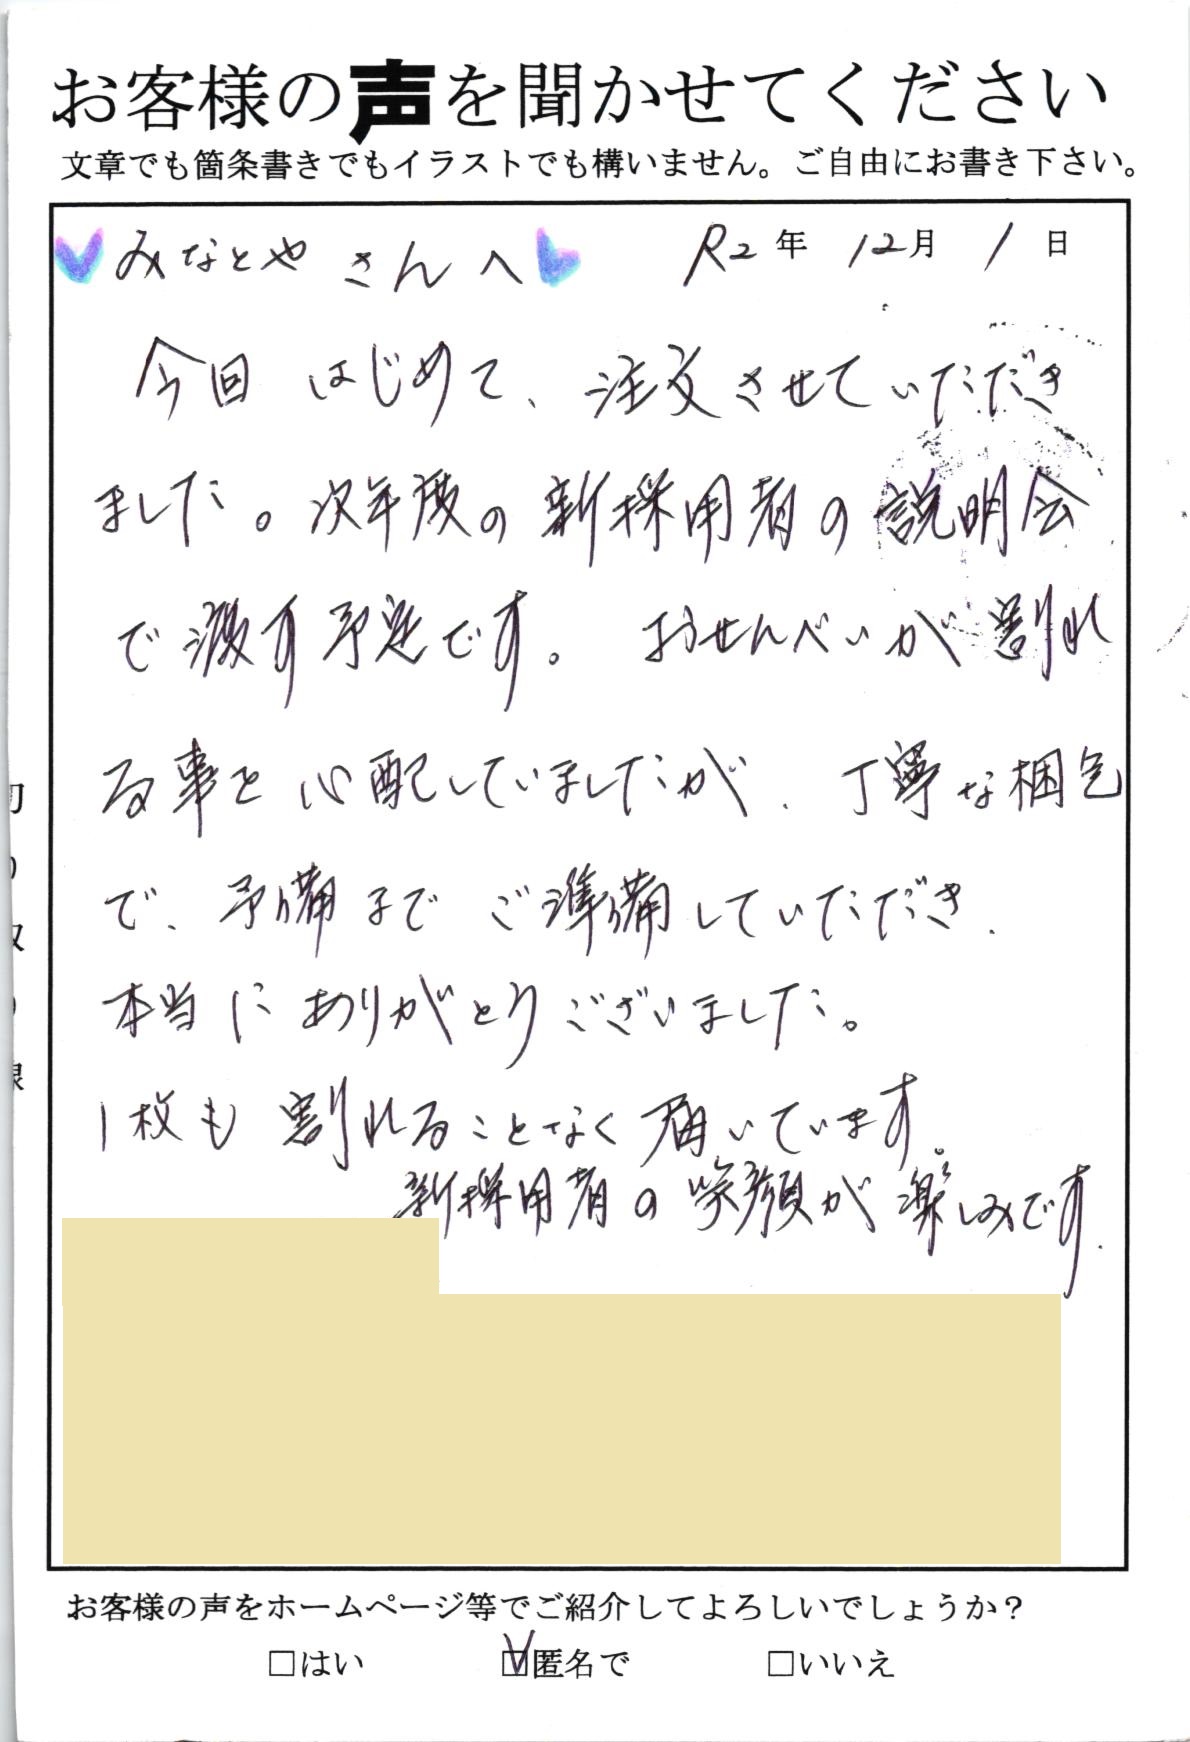 お客様の声を聞かせてください
文章でも箇条書きでもイラストでも構いません。ご自由にお書き下さい。
みなとや さんへ R2年 12月 1日
今回 はじめて、注文させていただき
ました。次年度の新採用者の説明会
で渡す予定です。 おせんべいが割れ
る事を心配していましたが、丁寧な梱包
で、予備まで ご準備していただき、
本当に ありがとうございました。
1枚も 割れることなく届いています。
新採用者の笑顔が楽しみです.
お客様の声をホームページ等でご紹介してよろしいでしょうか？
□はい ☑匿名で □いいえ